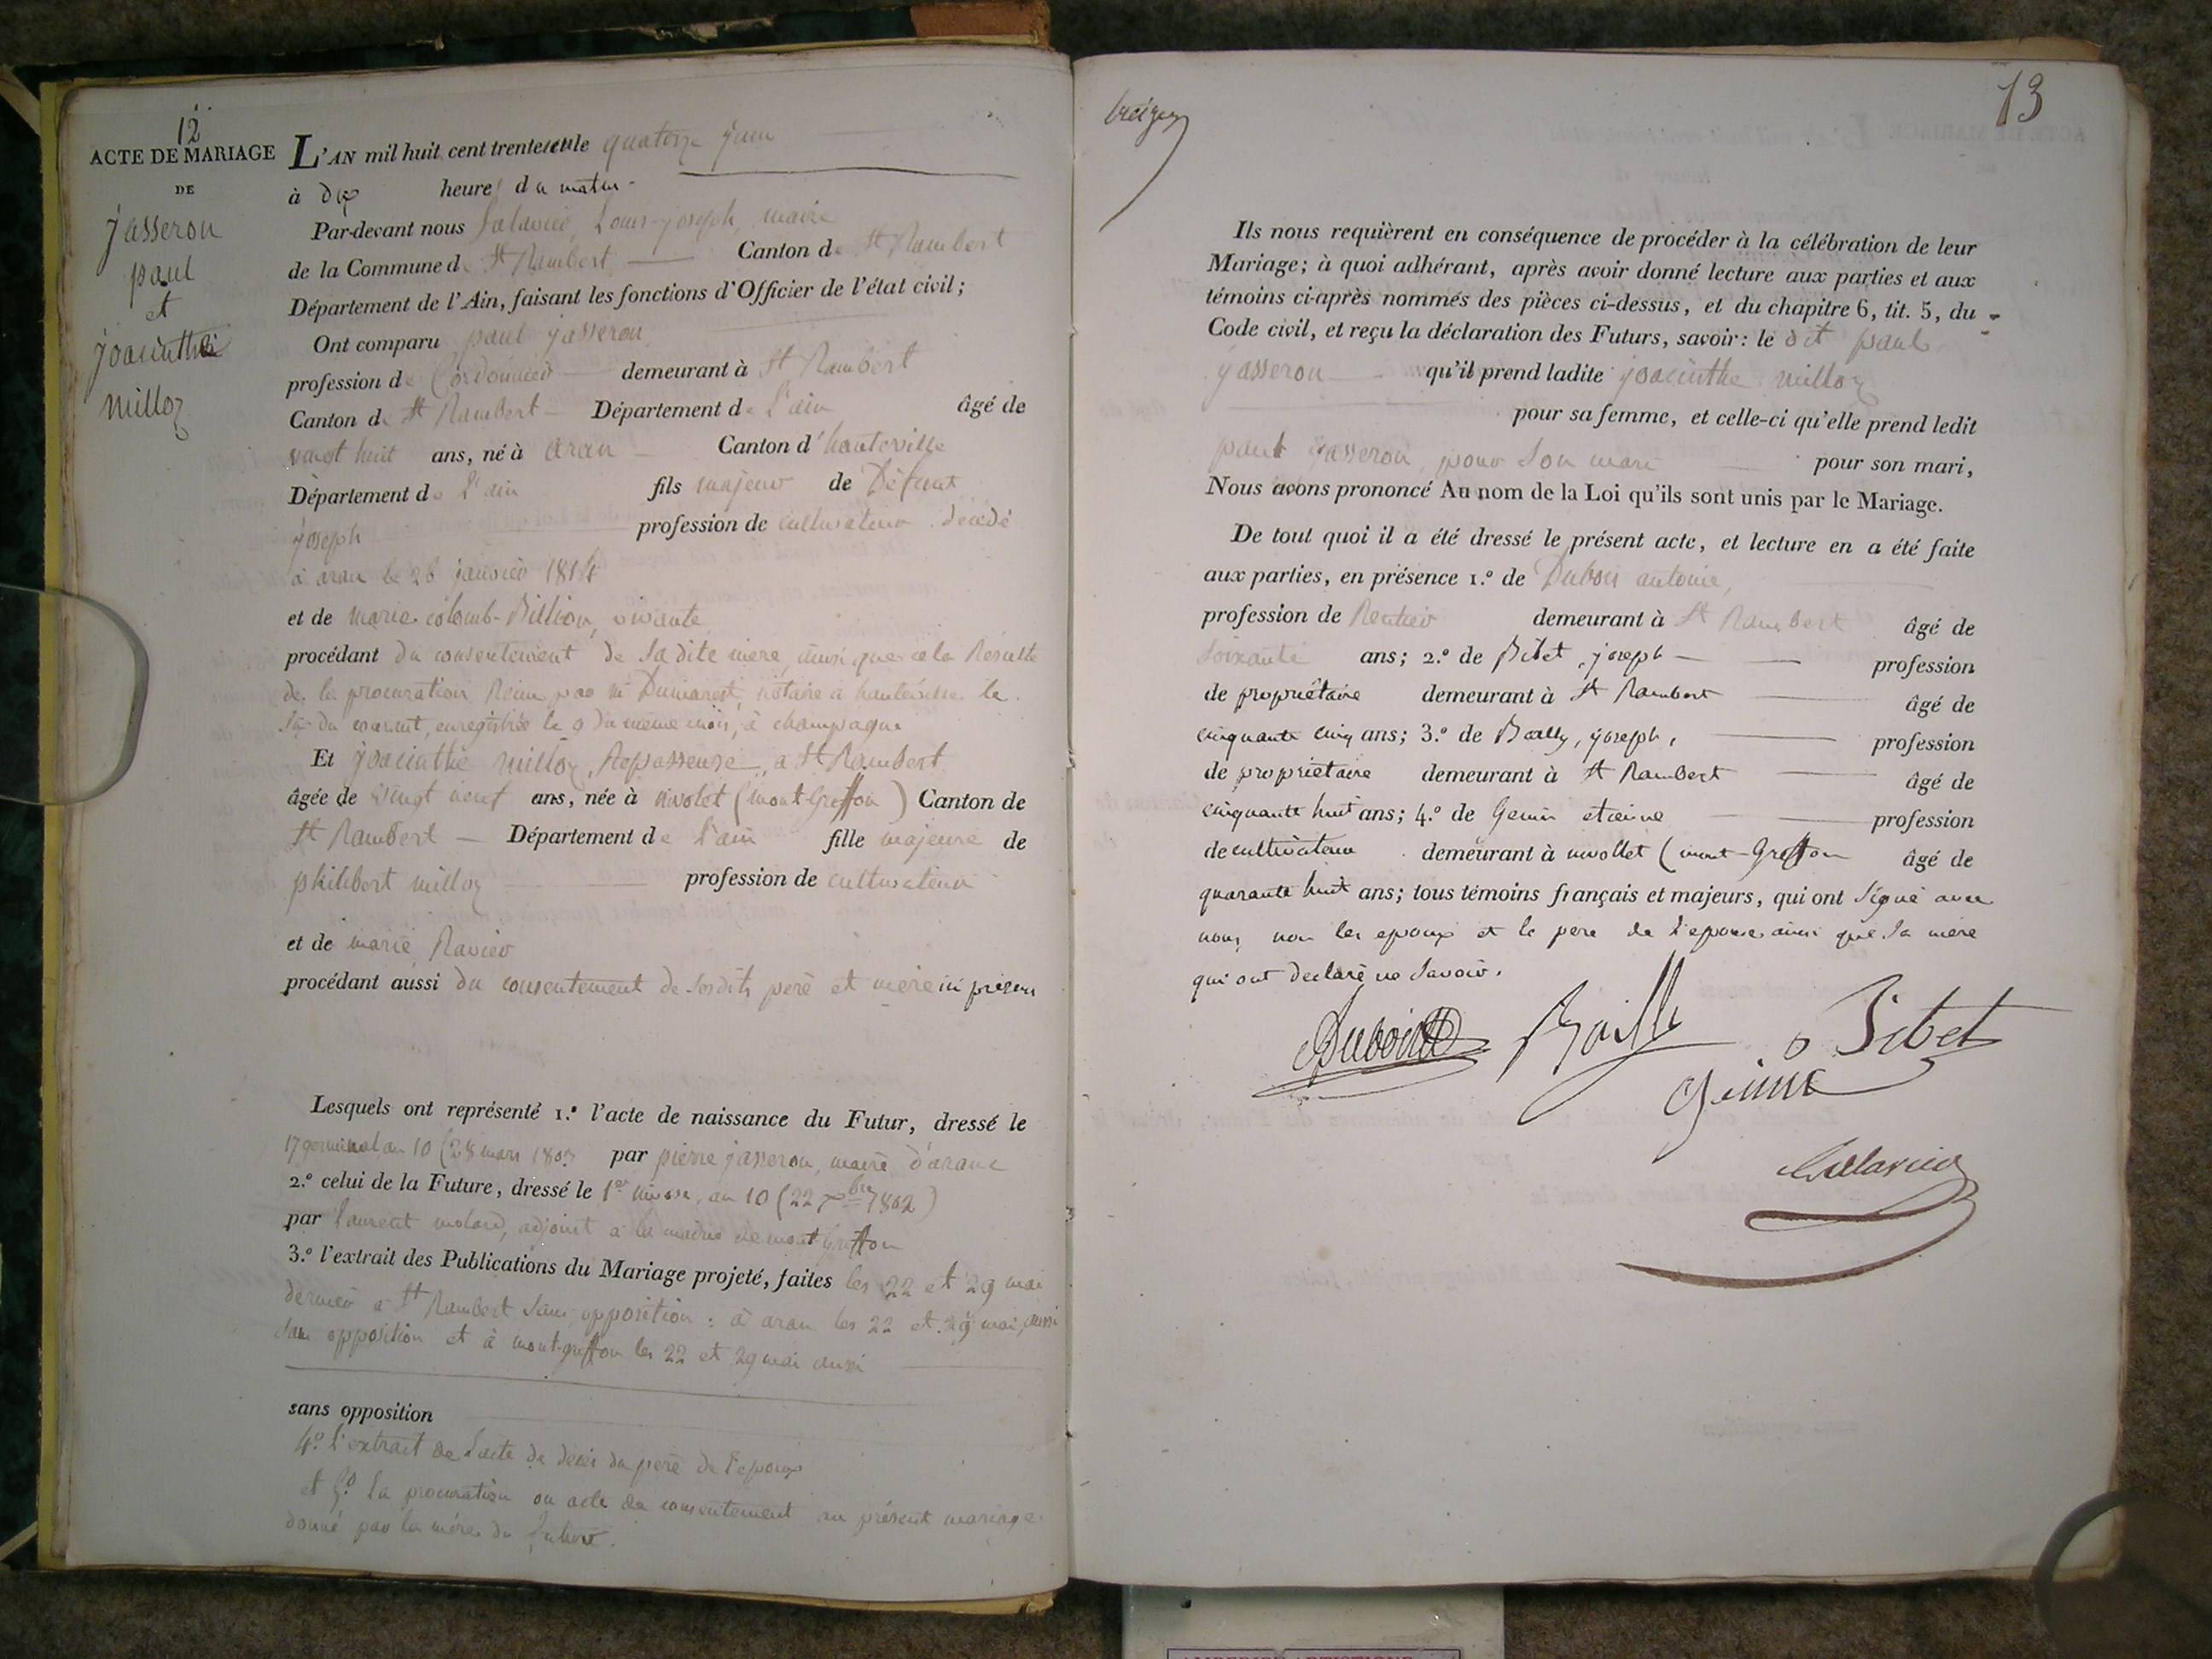 12
ACTE DE MARIAGE
DE
jasseron
paul
et
joacinthe
milloz
L'AN mil huit cent trente quatorze juin
à dix heures du matin
Par-devant nous Louis-joseph, maire
de la Commune de St Rambert Canton de St Rambert
Département de l'Ain, faisant les fonctions d'Officier de l'état civil;
Ont comparu paul jasseron
profession de Cordonnier demeurant à St Rambert
Canton de St Rambert Département de l'ain âgé de
vingt huit ans, né à aran Canton d'hauteville
Département de l'ain fils majeur de Défunt
joseph profession de cultivateur décédé
à aran le 26 janvier 1814
et de marie colomb-Billion, vivante
procédant du consentement de sa dite mère, ainsi que cela Résulte
de la procuration Reçue par Me Dumarest, notaire à hauteville le
du courant, enregistrée le 9 du même mois, à champagne
Et joacinthe milloz, Repasseuse, a St Rambert
âgée de vingt neuf ans, née à nivolet (mont-Greffon) Canton de
St Rambert Département de l'ain fille majeure de
philibert milloz profession de cultivateur
et de marie Ravier
procédant aussi du consentement de sesdits père et mère ici présens
Lesquels ont représenté 1.° l'acte de naissance du Futur, dressé le
17 germinal an 10 (28 mars 180 par pierre jasseron, maire d'aranc
2.° celui de la Future, dressé le 1er nivose, an 10 (22 xbre 1802)
par laurent molard, adjoint a la mairie de mont-greffon
3.° l'extrait des Publications du Mariage projeté, faites les 22 et 29 mai
dernier a St Rambert sans opposition : à aran les 22 et 29 mai, aussi
sans opposition et à mont-greffon les 22 et 29 mai aussi
sans opposition
4.° l'extrait de l'acte de décès du père de l'epoux
et 5.° la procuration ou acte de consentement au présent mariage
donné par la mère du futur.
13
treizey
Ils nous requièrent en conséquence de procéder à la célébration de leur
Mariage; à quoi adhérant, après avoir donné lecture aux parties et aux
témoins ci-après nommés des pièces ci-dessus, et du chapitre 6, tit. 5, du
Code civil, et reçu la déclaration des Futurs, savoir: le dit paul
jasseron qu'il prend ladite joacinthe milloz
pour sa femme, et celle-ci qu'elle prend ledit
paul jasseron, pour son mari pour son mari,
Nous avons prononcé Au nom de la Loi qu'ils sont unis par le Mariage.
De tout quoi il a été dressé le présent acte, et lecture en a été faite
aux parties, en présence 1.° de Dubois antoine,
profession de Rentier demeurant à St Rambert âgé de
soixante ans; 2.° de Bibet, joseph profession
de propriétaire demeurant à St Rambert âgé de
cinquante cinq ans; 3.° de Bailly, joseph, profession
de propriétaire demeurant à St Rambert âgé de
cinquante huit ans; 4.° de Genin etienne profession
de cultivateur demeurant à nivollet (mont-Greffon âgé de
quarante huit ans; tous témoins français et majeurs, qui ont signé avec
nous, non les epoux et le père de l'epouse ainsi que sa mère
qui ont déclaré ne savoir.
Dubois Bailly Bibet
Genin